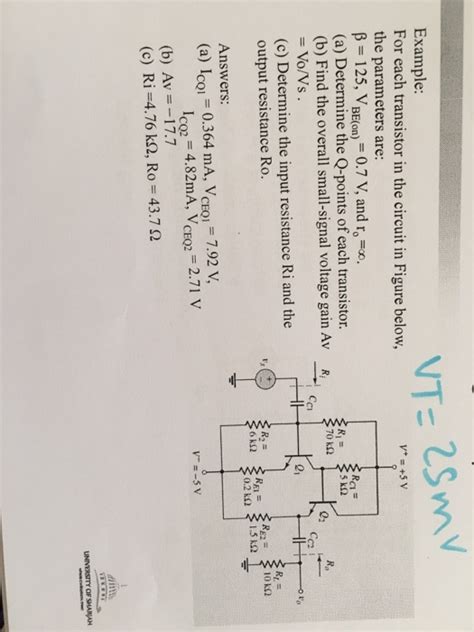 VT = 25mV
Example:
For each transistor in the circuit in Figure below,
the parameters are:
β = 125, V BE(on) = 0.7 V, and ro =∞.
(a) Determine the Q-points of each transistor.
(b) Find the overall small-signal voltage gain Av
= Vo/Vs .
(c) Determine the input resistance Ri and the
output resistance Ro.
Answers:
(a) ICQ1 = 0.364 mA, VCEQ1 = 7.92 V,
ICQ2 = 4.82mA, VCEQ2 = 2.71 V
(b) Av = -17.7
(c) Ri =4.76 kΩ, Ro = 43.7 Ω
V+ = +5 V
R1 =
70 kΩ
RC1 =
5 kΩ
Ri
CC1
Q1
Q2
Ro
CC2
vo
vs
R2 =
6 kΩ
RE1 =
0.2 kΩ
RE2 =
1.5 kΩ
RL =
10 kΩ
V− = −5 V
UNIVERSITY OF SHARJAH